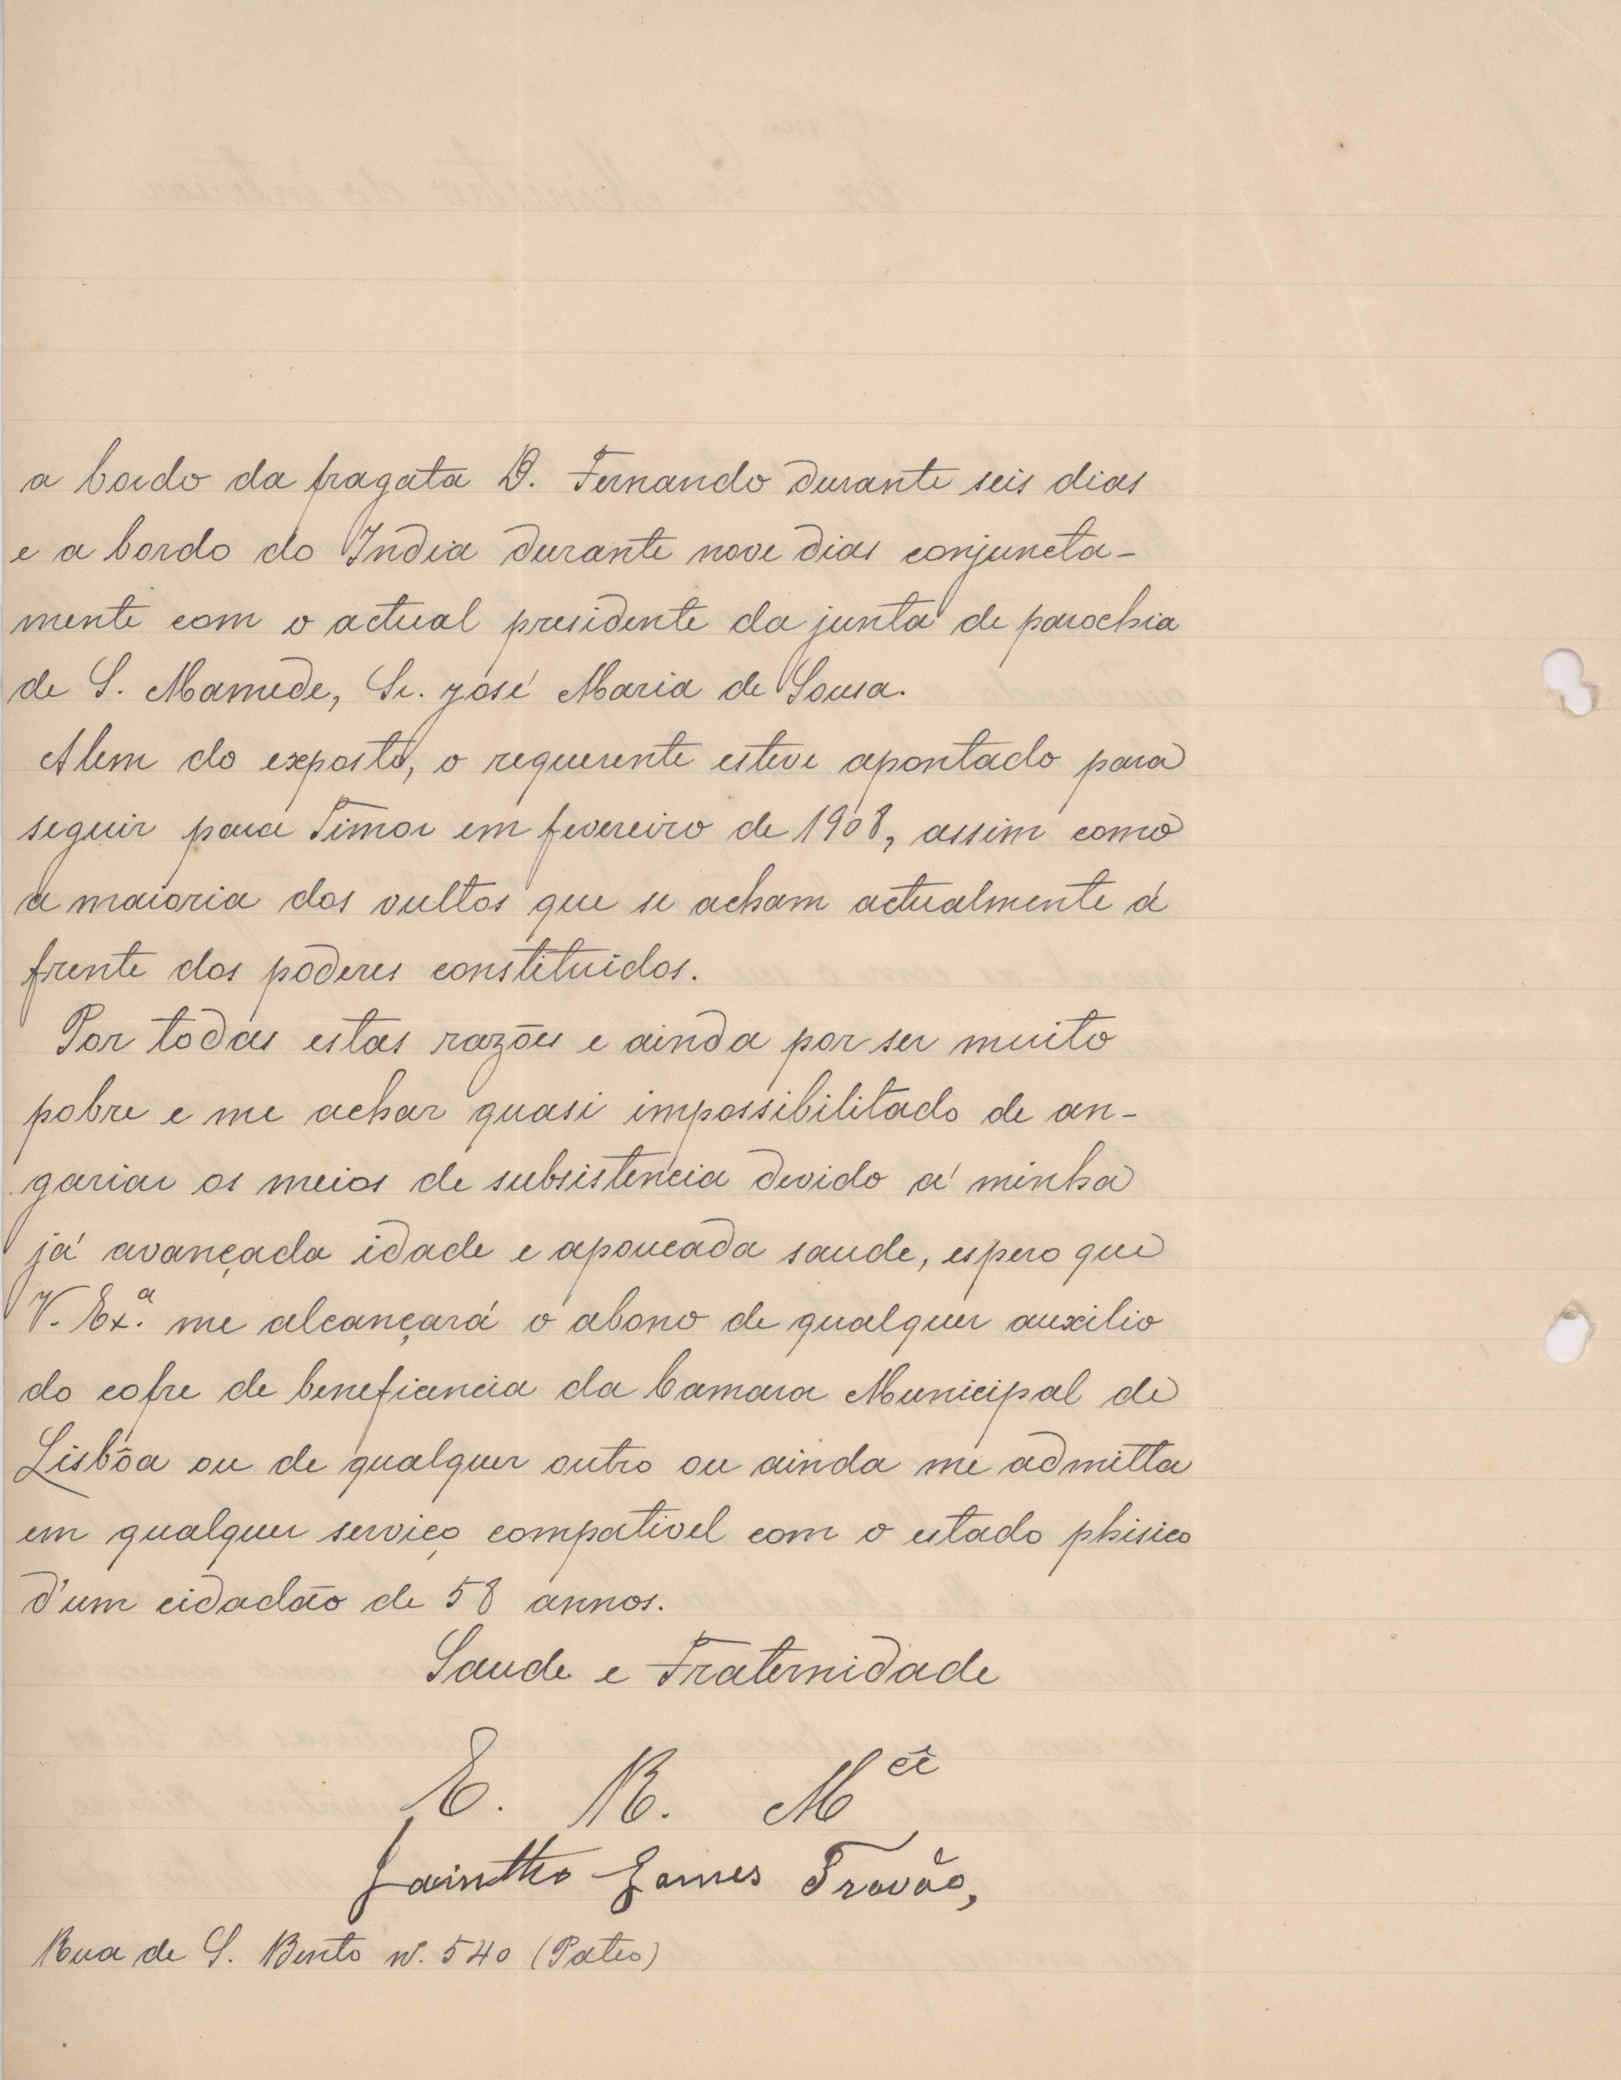 a bordo da fragata D. Fernando durante seis dias
e a bordo do India durante nove dias conjuncta-
mente com o actual presidente da junta de parochia
de S. Mamede, Sr. José Maria de Sousa.
Alem do exposto, o requerente esteve apontado para
seguir para Timor em fevereiro de 1908, assim como
a maioria dos vultos que se acham actualmente á
frente dos poderes constituidos.
Por todas estas razões e ainda por ser muito
pobre e me achar quasi impossibilitado de an-
gariar os meios de subsistencia devido á minha
já avançada idade e apoucada saude, espero que
V. Ex.ª me alcançará o abono de qualquer auxilio
do cofre de beneficencia da Camara Municipal de
Lisbôa ou de qualquer outro ou ainda me admitta
em qualquer serviço compativel com o estado phisico
d'um cidadão de 58 annos.
Saude e Fraternidade
E. R. M.cê
Jacintho Gomes Trovão,
Rua de S. Bento nº. 540 (Pateo)